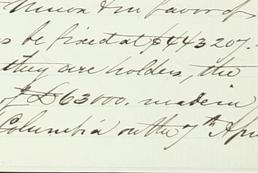 Union & in favor of
s be fixed at $443207.
they are holders, the
of £63000. made in
Columbia on the 7th Apr